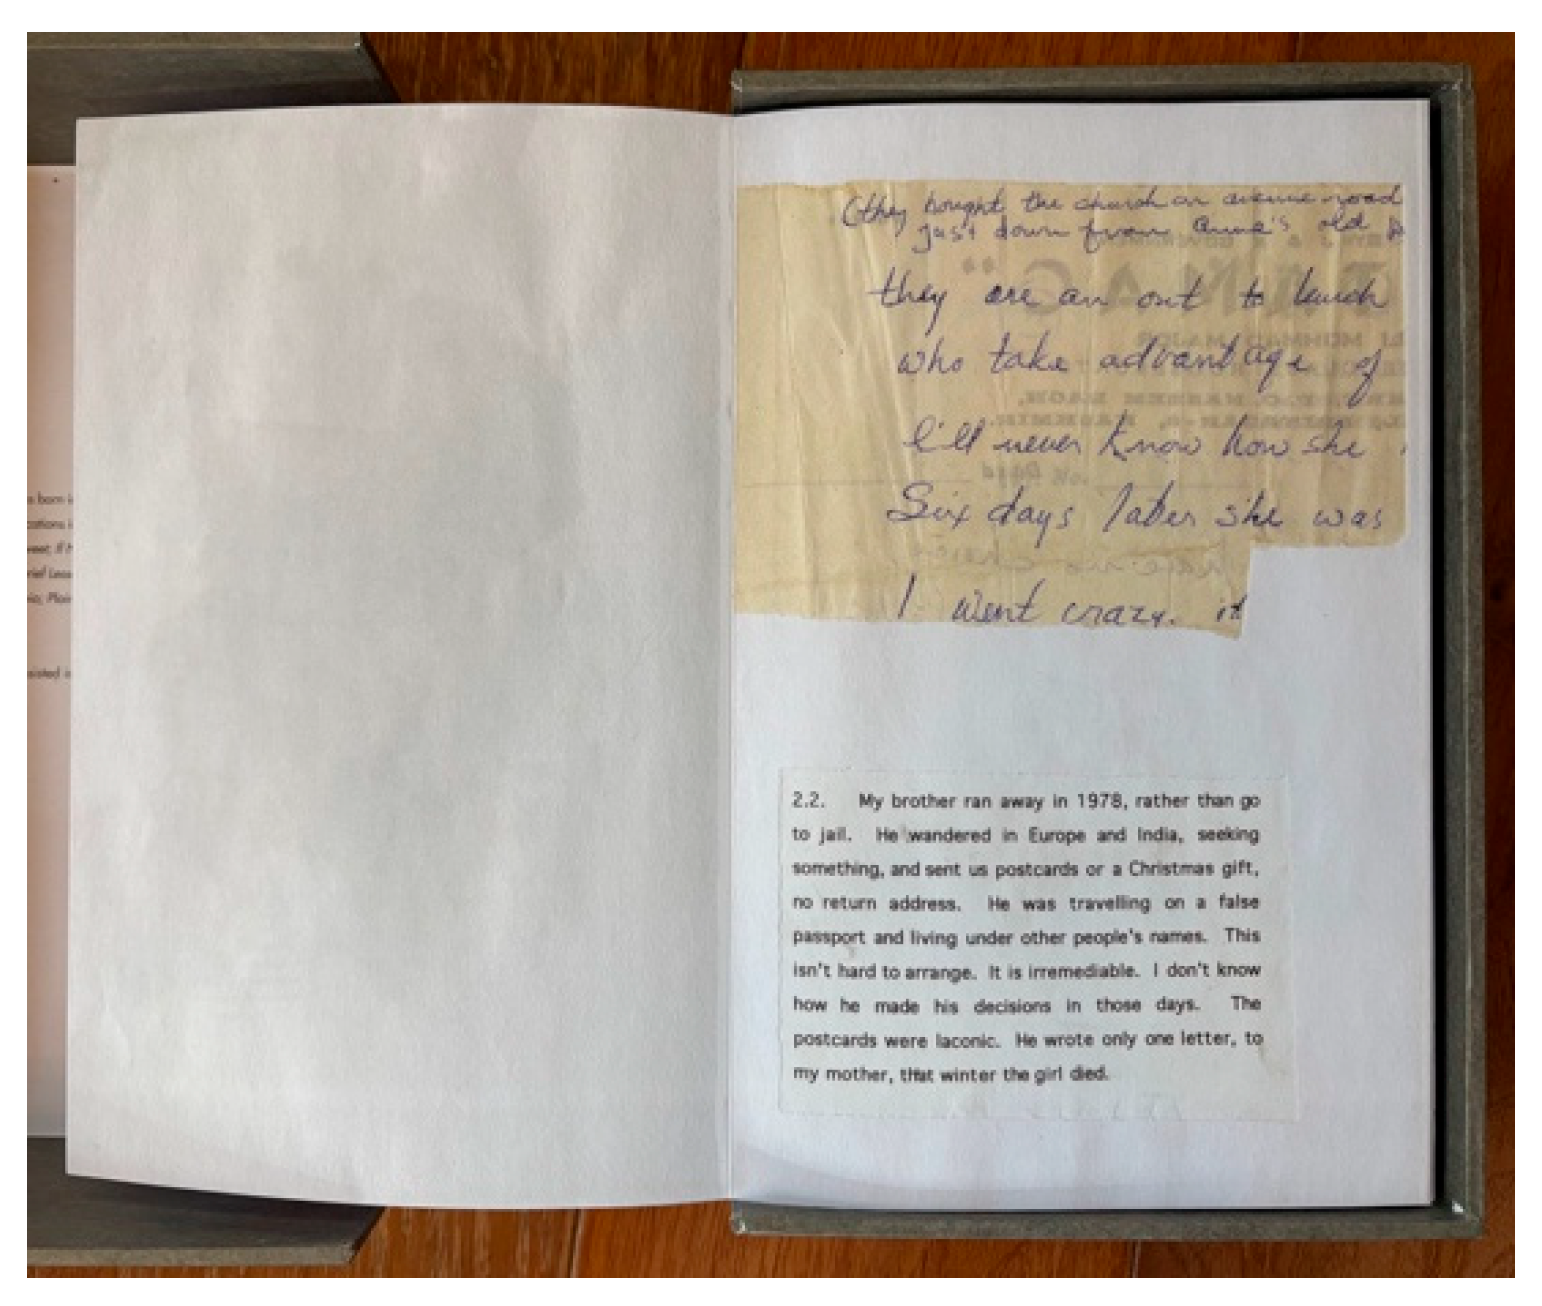 s born i
cations i
rief Less
sisted i
(they bought the church on avenue road
just down from Anne's old
they are an out to lunch
who take advantage of
I'll never know how she
Six days later she was
I went crazy. it
2.2. My brother ran away in 1978, rather than go
to jail. He wandered in Europe and India, seeking
something, and sent us postcards or a Christmas gift,
no return address. He was travelling on a false
passport and living under other people's names. This
isn't hard to arrange. It is irremediable. I don't know
how he made his decisions in those days. The
postcards were laconic. He wrote only one letter, to
my mother, that winter the girl died.